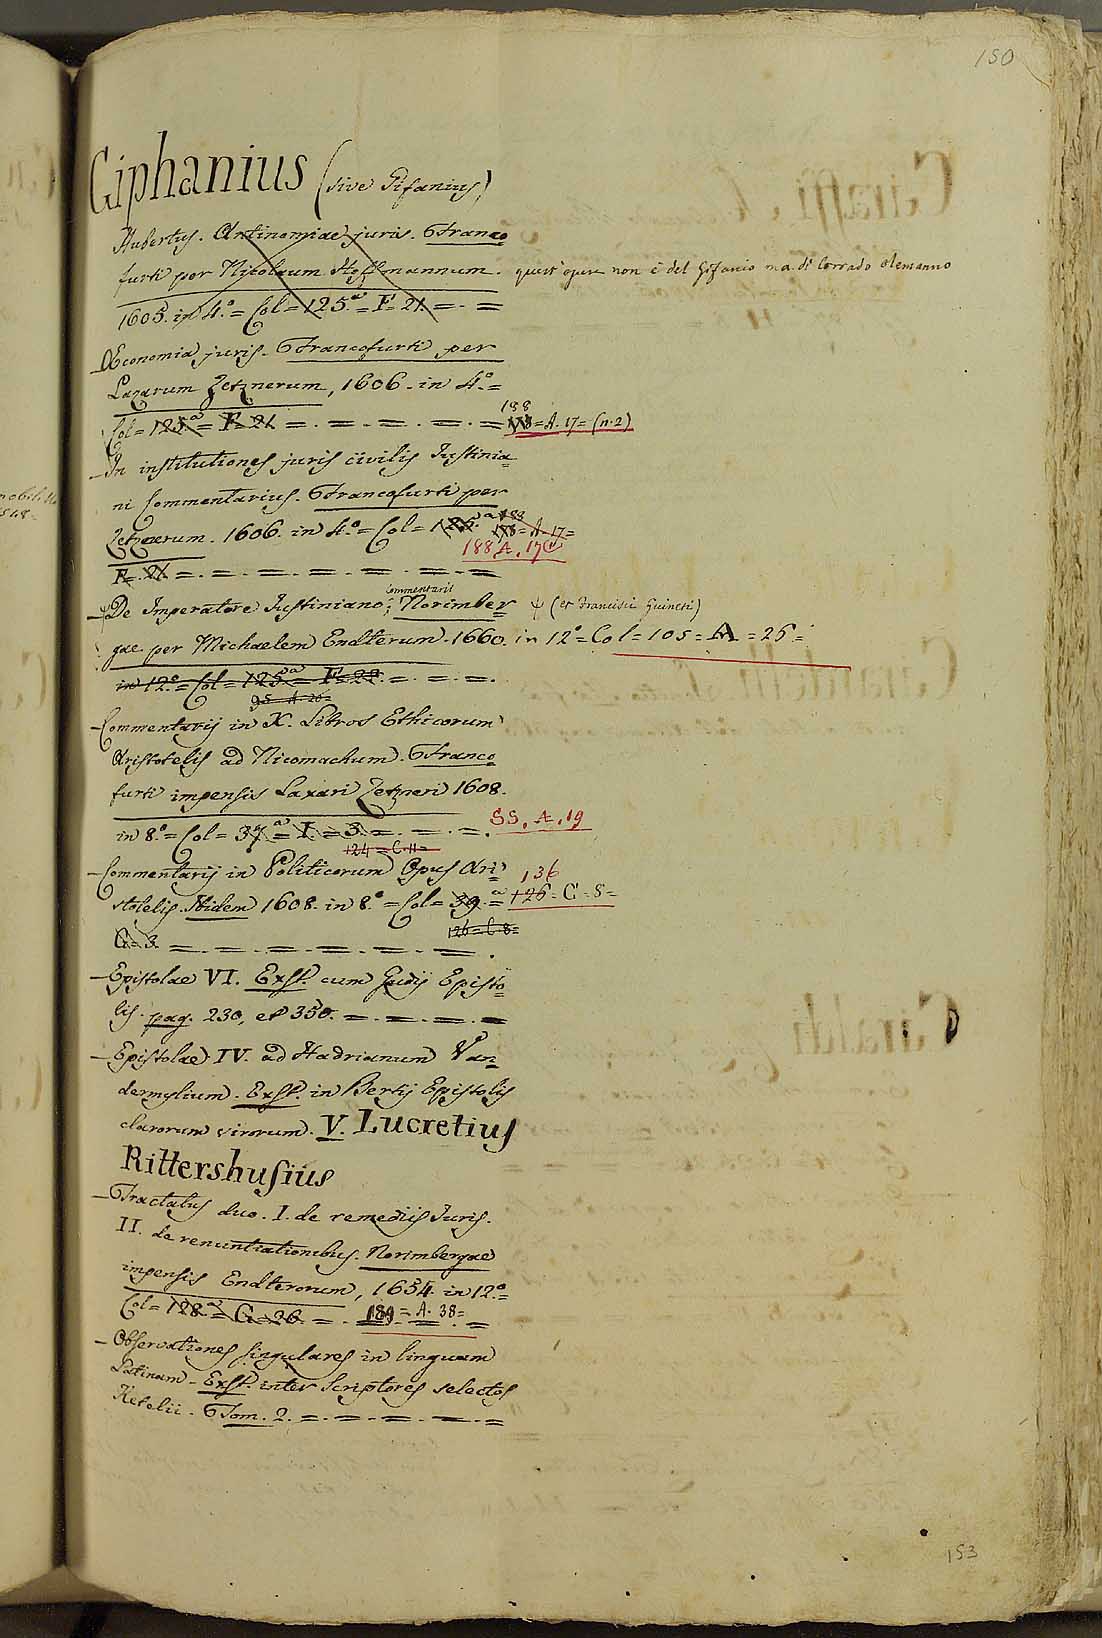 150
Giphanius (sive Gifanius)
Hubertus. Antinomiae juris. Franco
furti per Nicolaum Hoffmannum. quest'opera non è del Gifanio ma di Corrado Alemanno
1605. in 4.° = Col = 125.ª = F. 21. = . =
- Œconomia juris. Francofurti per
Lazarum Zetznerum, 1606. in 4.° =
188
Col = 125.ª = F. 21 = . = . = . = . = 178 = A. 17 = (n. 2)
- In institutiones juris civilis Justinia=
ni Commentarius. Francofurti per
188
Zetznerum. 1606. in 4.° = Col = 125.ª 178 = A. 17 =
188 A. 17
F. 21 = . = . = . = . = . = . =
Commentarii
- ψ De Imperatore Justiniano; Norimber ψ (et Francisci Guineti)
gae per Michaelem Endterum. 1660. in 12° = Col = 105 = A = 26 =
in 12.° = Col = 125.ª = F. 22 = . = . = .
95 A. 26 =
- Commentarij in X. Libros Ethicorum
Aristotelis ad Nicomachum. Franco
furti impensis Laxari Zetzneri 1608.
in 8.° = Col = 37.ª = I. = 3. = . = . = . SS. A. 19
124 = C. 11 =
- Commentarij in Politicorum Opus Ari= 136
stotelis. Ibidem 1608. in 8.° = Col = 39.ª = 126 = C = 8 =
126 = C. 8 =
G. 3. = . = . = . = . = . = .
- Epistolae VI. Exst. cum Gudij Episto=
lis. pag. 230, et 350. = . = . = . =
- Epistolae IV. ad Hadrianum Van=
dermylium. Exst. in Bertij Epistolis
clarorum virorum. V. Lucretius
Rittershusius
- Tractatus duo. I. de remediis Juris.
II. de renuntiationibus. Norimbergae
impensis Endterorum, 1654. in 12.° =
Col = 128.ª = G. 26. = . 189 = A. 38 =
- Observationes singulares in linguam
Latinam - Exst. inter Scriptores selectos
Ketelii. Tom. 2. = . = . = . = . =
153